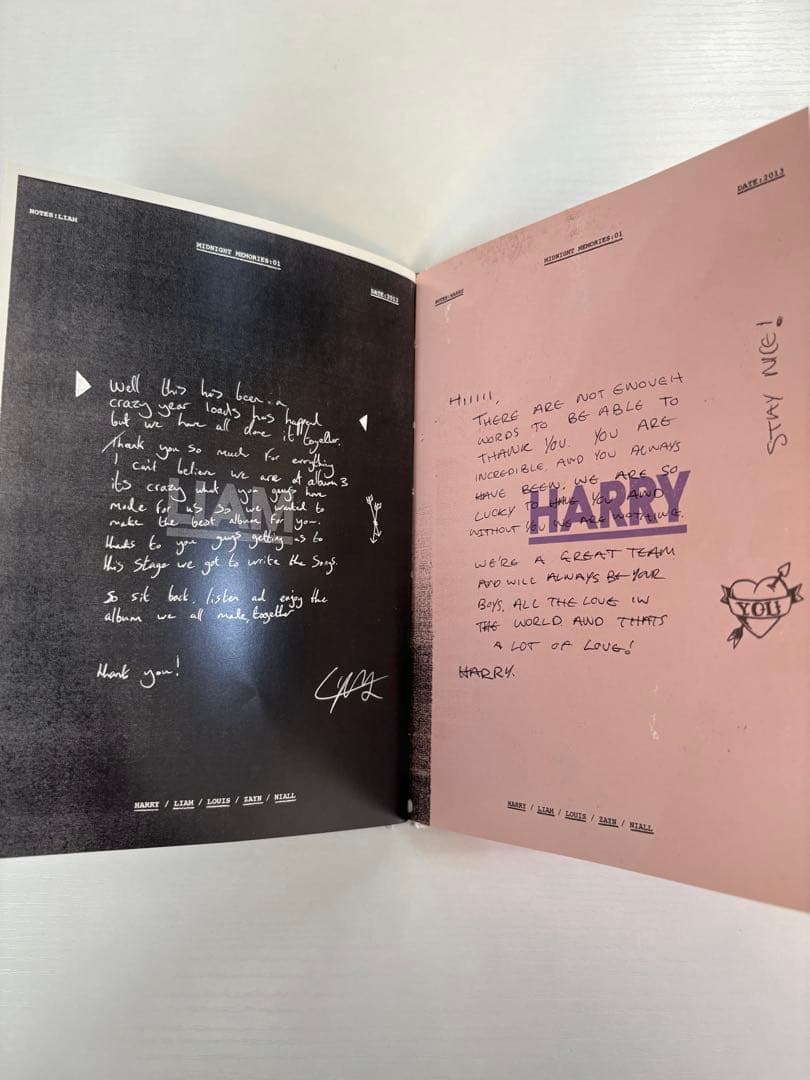 NOTES:LIAM
MIDNIGHT MEMORIES:01
DATE:2013
Well this has been a
crazy year loads has happend
but we have all done it together.
Thank you so much for everything
I can't believe we are at album 3
its crazy what you guys have
made for us so we wanted to
make the best album for you.
thanks to you guys getting us to
this stage we got to write the songs.
So sit back, listen and enjoy the
album we all made, together
thank you!
LIAM
HARRY / LIAM / LOUIS / ZAYN / NIALL
NOTES:HARRY
MIDNIGHT MEMORIES:01
DATE:2013
HIIIII,
THERE ARE NOT ENOUGH
WORDS TO BE ABLE TO
THANK YOU. YOU ARE
INCREDIBLE, AND YOU ALWAYS
HAVE BEEN. WE ARE SO
LUCKY TO HAVE YOU AND
WITHOUT YOU WE ARE NOTHING.
WE'RE A GREAT TEAM
AND WILL ALWAYS BE YOUR
BOYS. ALL THE LOVE IN
THE WORLD AND THATS
A LOT OF LOVE!
HARRY.
HARRY
STAY NICE!
YOU
HARRY / LIAM / LOUIS / ZAYN / NIALL